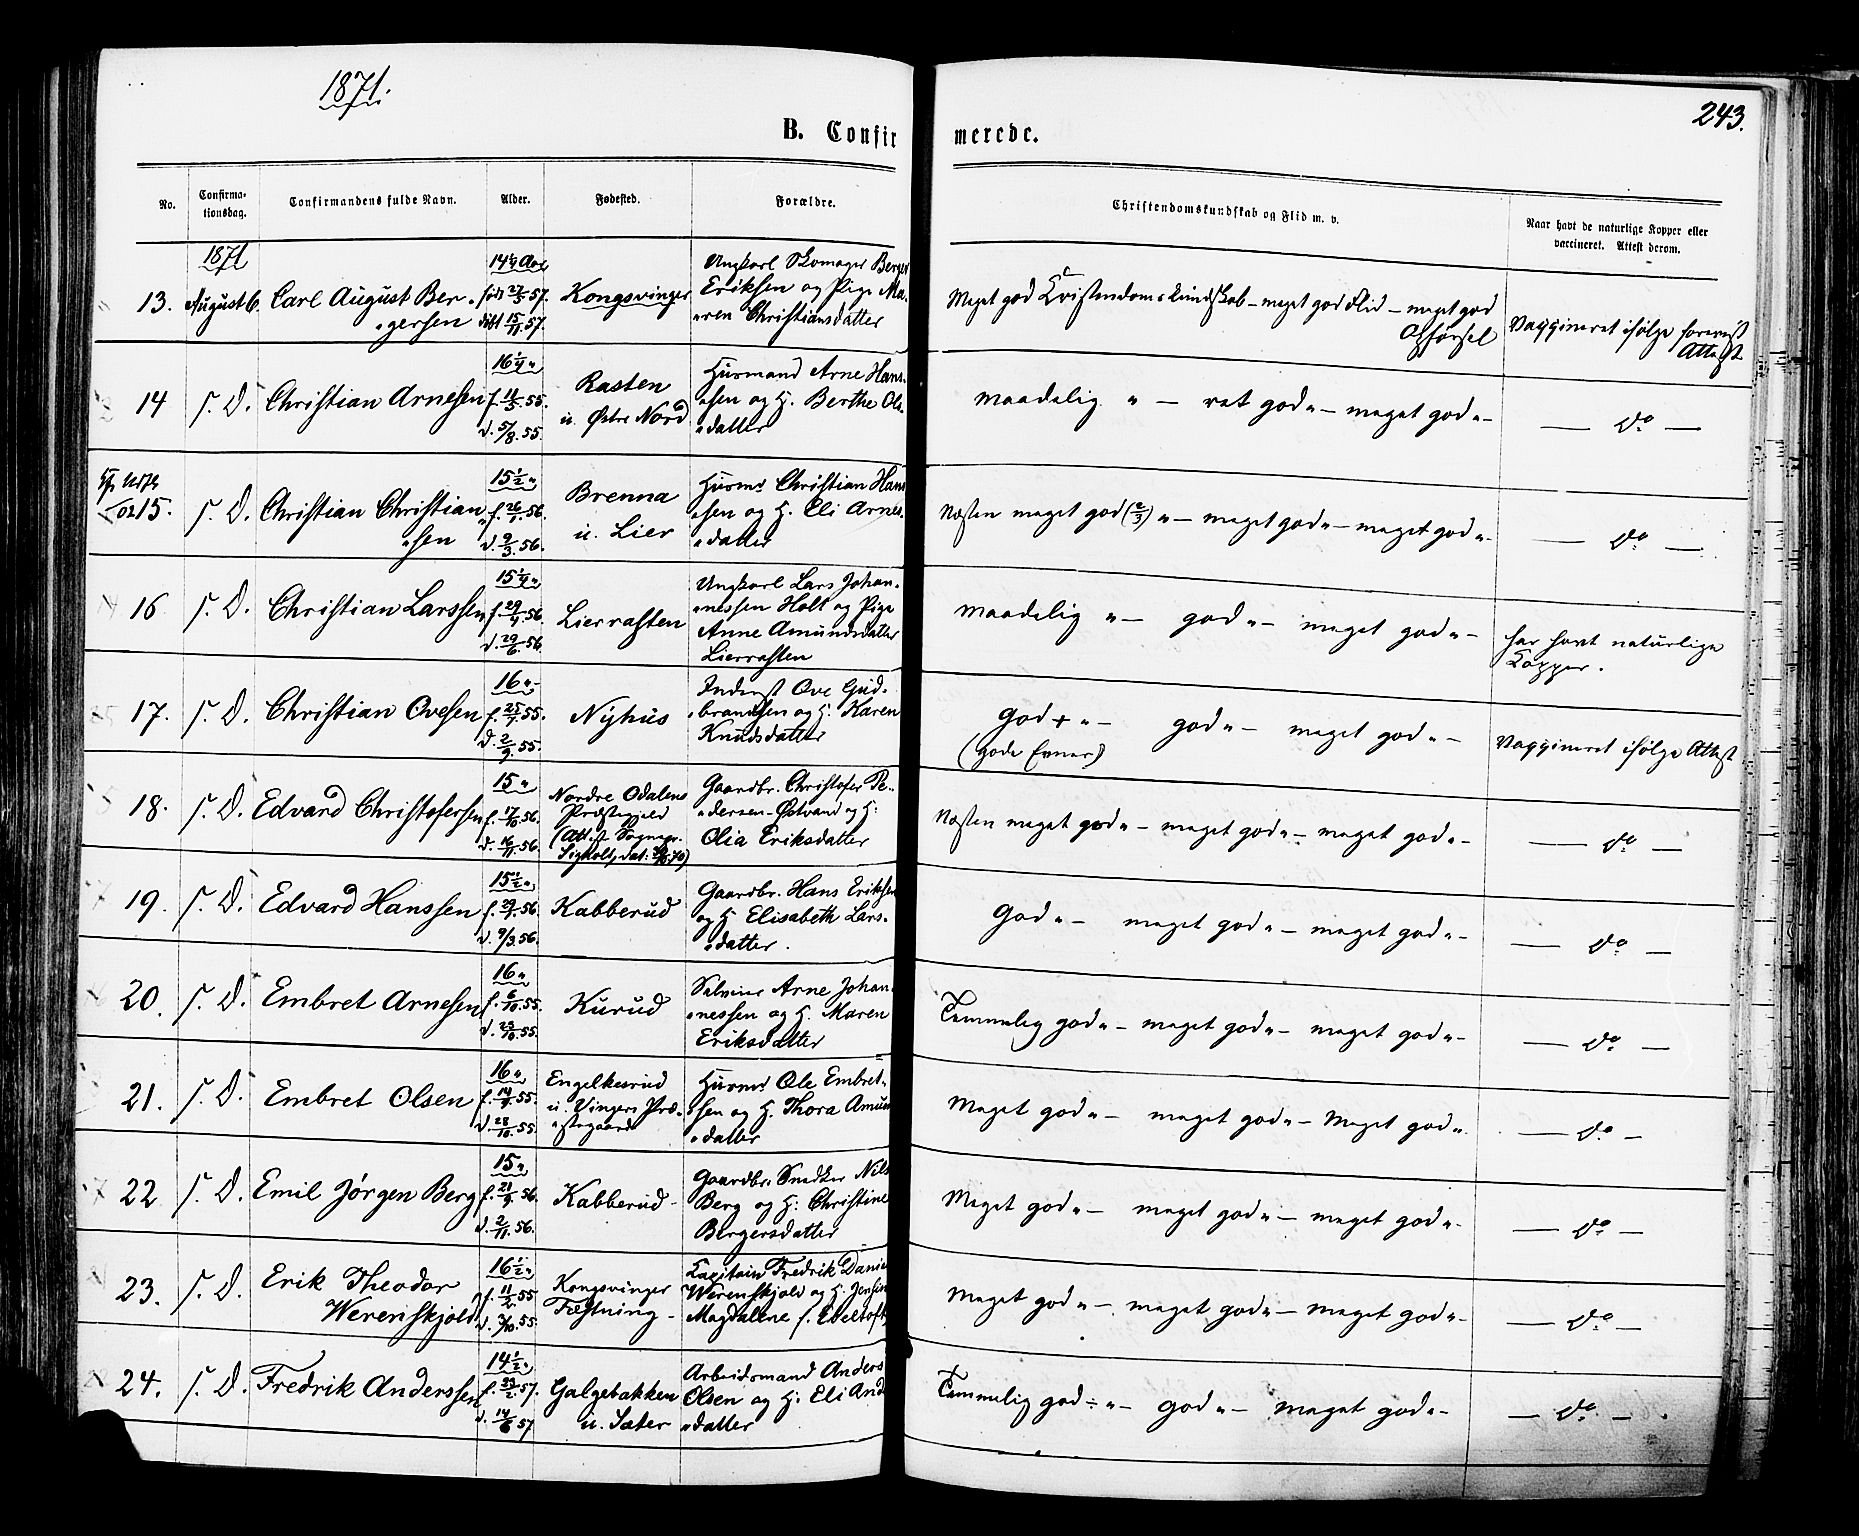 1871.
243.
B. Confir
merede.
No.
Confirma-
tionsdag.
Confirmandens fulde Navn.
Alder.
Fødested.
Forældre.
Christendomskundskab og Flid m. v.
Naar havt de naturlige Kopper eller
vaccineret. Attest derom.
1871
13. August 6. Carl August Ber-
"gersen
14¼ Aar
født 27/5 57.
døbt 15/11 57.
Kongsvinger
Ungkarl Skomager Berger
Eriksen og Pige Ma-
"ren Christiansdatter
Meget god Kristendomskundskab - meget god Flid - meget god
Opførsel
Vaccineret ifølge forevist
Attest
14 s. D. Christian Arnesen
16¼ "
f. 11/5 55.
d. 5/8 55.
Rasten
u. Østre Nord
Husmand Arne Hans-
"sen og H. Berthe Ols-
"datter
maadelig " - ret god " - meget god " -
— do —
15. s. D. Christian Christian-
"sen
15½ "
f. 26/1 56.
d. 9/3 56.
Brenna
u. Lier
Husmd Christian Hans
"sen og H. Eli Arnes-
"datter
Næsten meget god (2/3) " - meget god " - meget god " -
— do —
16 s. D. Christian Larssen
15¼ "
f. 29/4 56.
d. 29/6 56.
Lierrasten
Ungkarl Lars Johan-
"nessen Holt og Pige
Anne Amundsdatter
Lierrasten
maadelig " - god " - meget god " -
har havt naturlige
Kopper.
17. s. D. Christian Ovesen
16 " -
f. 25/7 55.
d. 2/9 55.
Nyhus
Inderst Ove Gud-
"brandsen og H. Karen
Knudsdatter
God + " - god " - meget god " -
(gode Evner)
Vaccineret ifølge Attest
18. s. D. Edvard Christofersen
15 "
f. 17/10 56.
d. 16/11 56.
Nordre Odalens
Præstegjeld
(Att. f. Sognepr.
Gaardbr. Christofer Pe-
"dersen - Østvand og H:
Olia Eriksdatter
Næsten meget god " - meget god " - meget god " -
— do —
19. s. D. Edvard Hanssen
15½ "
f. 29/1 56.
d. 9/3 56.
Kabberud
Gaardbr. Hans Eriksen
og H Elisabeth Lars-
"datter.
God " - meget god " - meget god " -
— do —
20. s. D. Embret Arnesen
16 "
f. 6/10 55.
d. 23/10 55.
Kurud
Selveier Arne Johan-
"nessen og H. Maren
Eriksdatter
Temmelig god " - meget god " - meget god " -
— do —
21. s. D. Embret Olsen
16 "
f. 14/9 55.
d. 28/10 55.
Engelkesrud
u. Vingers Præ-
"stegaard
Husmd Ole Embret-
"sen og H. Thora Amun
"datter
Meget god " - meget god " - Meget god "
— do —
22 s. D. Emil Jørgen Berg
15 "
f. 21/9 56.
d. 2/11 56.
Kabberud -
Gaardbr. Snedker Nils
Berg og H: Christine
Bergersdatter
Meget god " - meget god " - meget god " -
— do —
23. s. D. Erik Theodor
Werenskjold
16½ "
f. 11/2 55
d. 3/10 55.
Kongsvinger
Fæstning -
Capitain Fredrik Danie
Werenskjold og H. Jensine
Magdalene f. Ebeltoft
Meget god " - meget god " - meget god " -
— do —
24. s. D. Fredrik Anderssen
14½ "
f. 23/2 57.
d. 14/6 57
Galgebakken
u. Sæter
Arbeidsmand Anders
Olsen og H. Eli And
"datter
Temmelig god ÷ " - god " - meget god " -
— do —